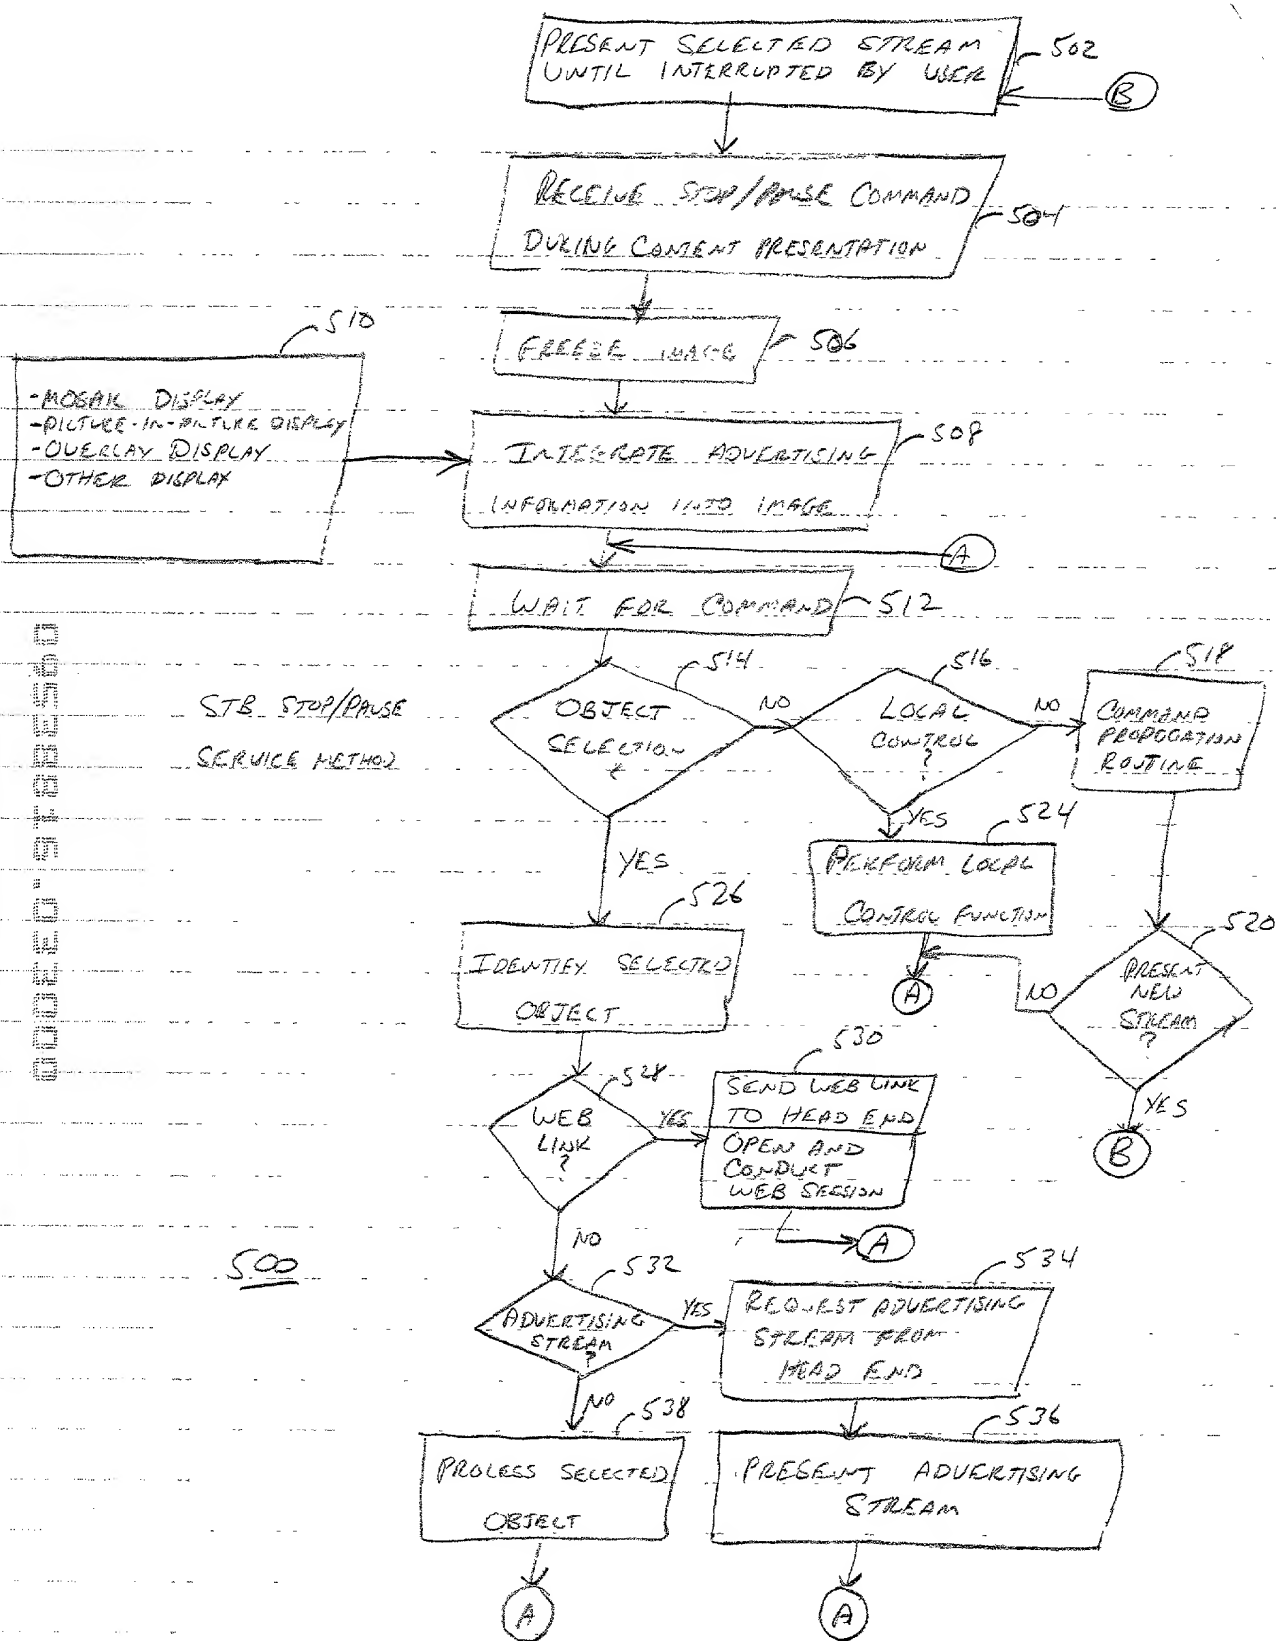 PRESENT SELECTED STREAM
UNTIL INTERRUPTED BY USER
502
B
RECEIVE STOP/PAUSE COMMAND
DURING CONTENT PRESENTATION
504
FREEZE IMAGE
506
510
-MOSAIC DISPLAY
-PICTURE-IN-PICTURE DISPLAY
-OVERLAY DISPLAY
-OTHER DISPLAY
INTEGRATE ADVERTISING
INFORMATION INTO IMAGE
508
A
WAIT FOR COMMAND
512
STB STOP/PAUSE
SERVICE METHOD
OBJECT
SELECTION
?
514
NO
LOCAL
CONTROL
?
516
NO
COMMAND
PROPOGATION
ROUTINE
518
YES
YES
524
PERFORM LOCAL
CONTROL FUNCTION
A
520
PRESENT
NEW
STREAM
?
NO
YES
B
526
IDENTIFY SELECTED
OBJECT
528
WEB
LINK
?
YES
530
SEND WEB LINK
TO HEAD END
OPEN AND
CONDUCT
WEB SESSION
A
NO
500
532
ADVERTISING
STREAM
?
YES
534
REQUEST ADVERTISING
STREAM FROM
HEAD END
NO
538
PROCESS SELECTED
OBJECT
A
536
PRESENT ADVERTISING
STREAM
A